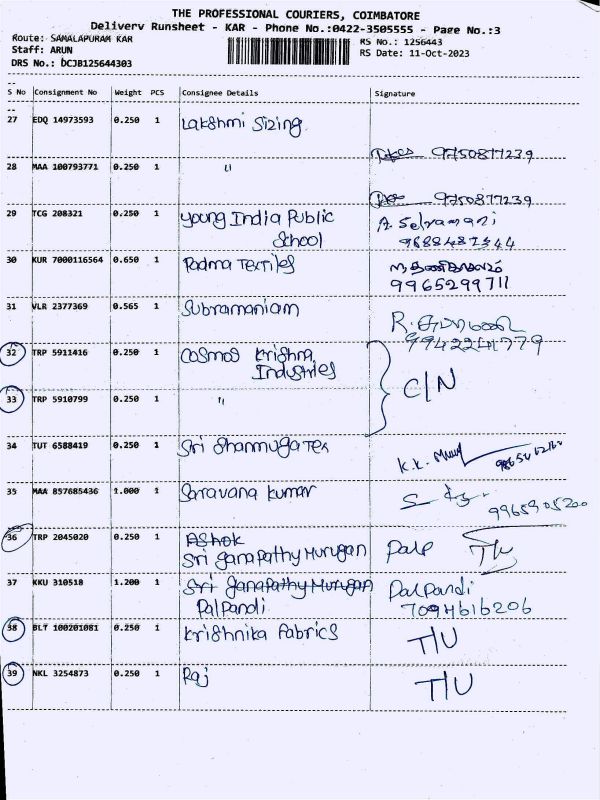 THE PROFESSIONAL COURIERS, COIMBATORE
Delivery Runsheet - KAR - Phone No.:0422-3505555 - Page No.:3
Route: SAMALAPURAM KAR
RS No.: 1256443
Staff: ARUN
RS Date: 11-Oct-2023
DRS No.: DCJB125644303
S No Consignment No Weight PCS Consignee Details Signature
27 EDQ 14973593 0.250 1 Lakshmi Sizing
9750877239
28 MAA 100793771 0.250 1 "
9750877239
29 TCG 208321 0.250 1 Young India Public School A. Selvamani
9688487344
30 KUR 7000116564 0.650 1 Padma Textiles
9965299711
31 VLR 2377369 0.565 1 Subramaniam R.
9942241779
32 TRP 5911416 0.250 1 Cosmos Krishna Industries C/N
33 TRP 5910799 0.250 1 "
34 TUT 6588419 0.250 1 Sri Shanmuga Tex K.K.
35 MAA 857685436 1.000 1 Saravana Kumar
9965905200
36 TRP 2045020 0.250 1 Ashok
Sri Ganapathy Murugan Palp T/U
37 KKU 310518 1.200 1 Sri Ganapathy Murugan Palpandi
Palpandi 7094616206
38 BLT 100201081 0.250 1 Krishnika Fabrics T/U
39 NKL 3254873 0.250 1 Raj T/U